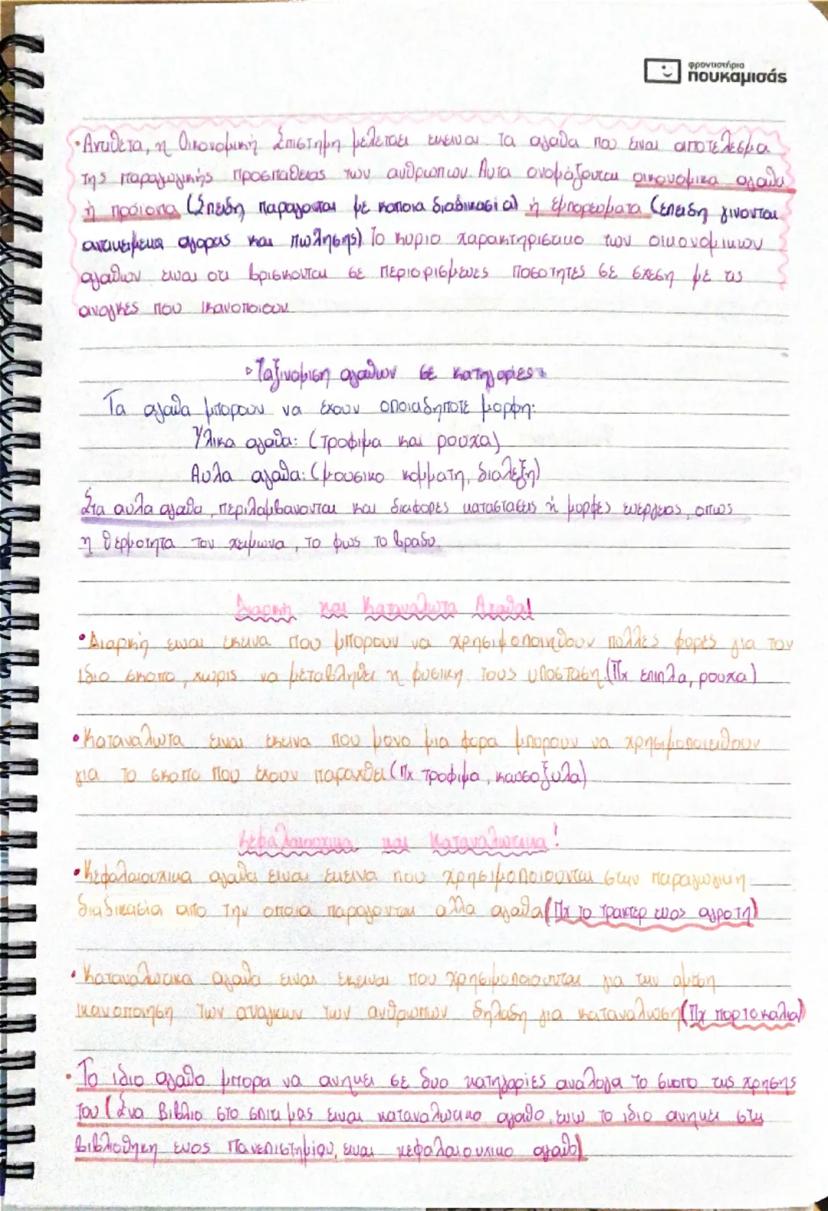 φροντιστήρια
πουκαμισάς
• Αντιθετα, η Οικονομική Επιστημη μελεταει εκειναι τα αγαθα που ειναι αποτελεσμα
της παραγωγικής προσπαθειας των ανθρωπων. Αυτα ονομάζονται οικονομικα αγαθα
ή προιοντα (Επειδη παραγονται με καποια διαδικασια) ή εμπορευματα (επειδη γινονται
αντικειμενα αγορας και πωλησης) Το κυριο χαρακτηριστικο των οικονομικων
αγαθων ειναι οτι βρισκονται σε περιορισμενες ποσοτητες σε σχεση με τις
αναγκες που ικανοποιουν.
Ταξινομιση αγαθων σε κατηγορίες
Τα αγαθα μπορουν να εχουν οποιαδηποτε μορφη:
Υλικα αγαθα: (τροφιμα και ρουχα)
Αυλα αγαθα: (μουσικο κομματη, διαλεξη)
Στα αυλα αγαθα, περιλαμβανονται και διαφορες καταστασεις ή μορφες ενεργειας, οπως
η θερμοτητα τον χειμωνα, το φως το βραδυ.
Διαρκη και Καταναλωτα Αγαθα!
• Διαρκή ειναι εκεινα που μπορουν να χρησιμοποιηθουν πολλες φορες για τον
ιδιο σκοπο, χωρις να μεταβληθει η φυσικη τους υποσταση (Πχ επιπλα, ρουχα)
• Καταναλωτα ειναι εκεινα που μονο μια φορα μπορουν να χρησιμοποιειθουν
για το σκοπο που εχουν παραχθει (Πχ τροφιμα, καυσοξυλα)
Κεφαλαιουχικα και Καταναλωτικα!
• Κεφαλαιουχικα αγαθα ειναι εκεινα που χρησιμοποιουνται στην παραγωγικη
διαδικασια απο την οποια παραγονται αλλα αγαθα (Πχ το τρακτερ ενος αγροτη)
• Καταναλωτικα αγαθα ειναι εκειναι που χρησιμοποιουνται για την αμεση
ικανοποιηση των αναγκων των ανθρωπων δηλαδη για καταναλωση (Πχ πορτοκαλια)
• Το ιδιο αγαθο μπορα να ανηκει σε δυο κατηγορίες αναλογα το σκοπο της χρησης
του (Ενα βιβλιο στο σπιτι μας ειναι καταναλωτικο αγαθο, ενω το ιδιο ανηκει στη
βιβλιοθηκη ενος Πανεπιστημιου, ειναι κεφαλαιουχικο αγαθο)